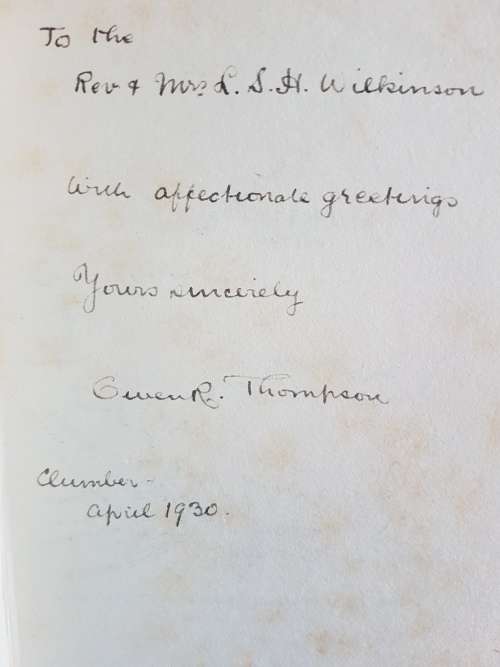 To the
Rev & Mrs L. S. H. Wilkinson
With affectionate greetings
Yours sincerely
Owen R. Thompson
Clumber -
April 1930.